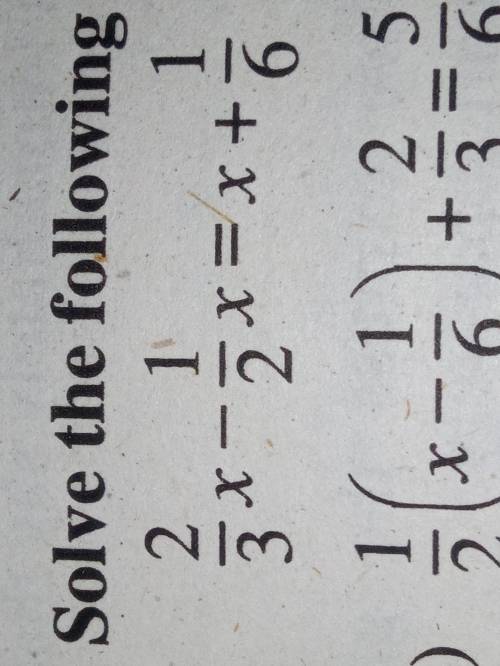 Solve the following
2/3 x − 1/2 x = x + 1/6
) 1/2 (x − 1/6) + 2/3 = 5/6